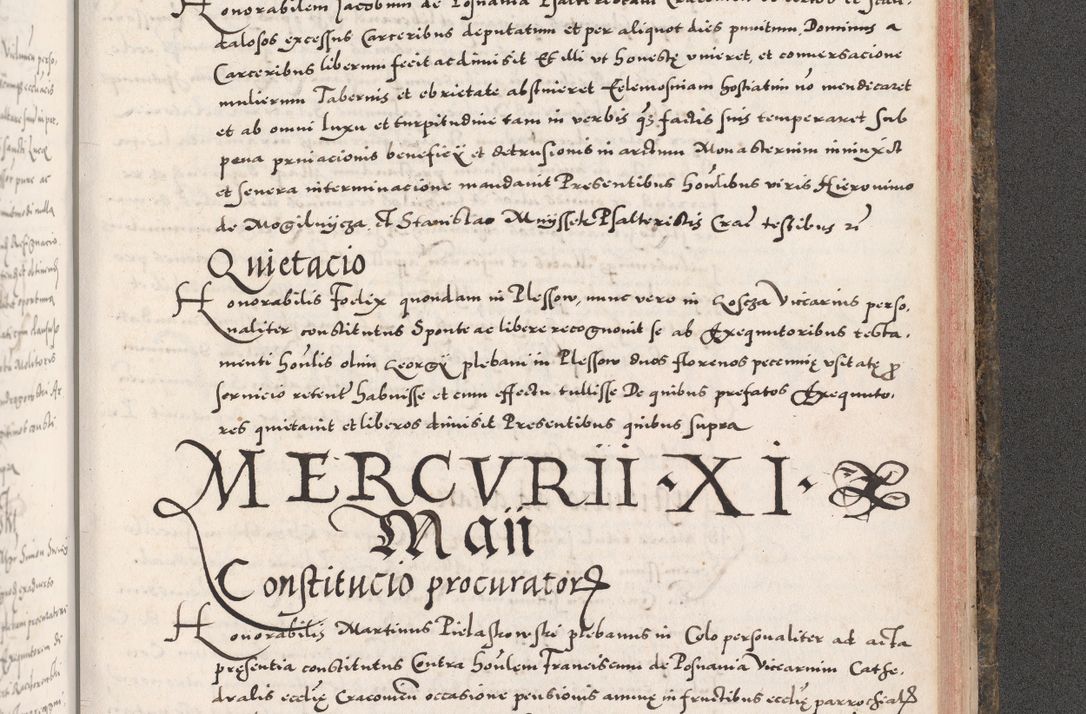 Honorabilem Jacobum de Posnania Psalteristam
dalosos excessus Carceribus deputatum et per aliquot dies punitum, Dominus a
Carceribus liberum fecit ac dimisit Et illi vt honestę viueret, et conuersacione
mulierum Tabernis et ebrietate abstineret Eelemosinam hostiatim nō mendicaret
et ab omni luxu et turpitudine tam in verbis q̃ȝ factis suis temperaret Sub
pena priuacionis beneficÿ et detrusionis in arctum Monasterium iniunxit
et seuera interminacione mandauit Presentibus hoñlibus viris Hieronimo
de Mogilnycza, et Stanislao Mnyssek Psalteristis Crac̃ testibus
Quietacio
Honorabilis Fœlix quondam in Plessow, nunc vero in Koscza Viccarius perso,
naliter constitutus Sponte ac libere recognouit se ab Exequutoribus testa,
menti hoñlis olim Georgÿ plebani in Plessow duos florenos pecunię vsitatę p̱
seruicio retent̃ habuisse et cum effectu tullisse De quibus prefatos Exequuto,
res quietauit et liberos dimisit Presentibus quibus supra
MERCVRII · XI ·
Maii
Constitucio procuratorꝶ
Honorabilis Martinus Pielaskowski plebanus in Colo personaliter ad acta
pręsentia constitutus Contra hoñlem Franciscum de Posnania Viccarium Cathe,
dralis ecclię Cracouieñ occasione pensionis annuę in fructibus ecclię parrochialꝭ